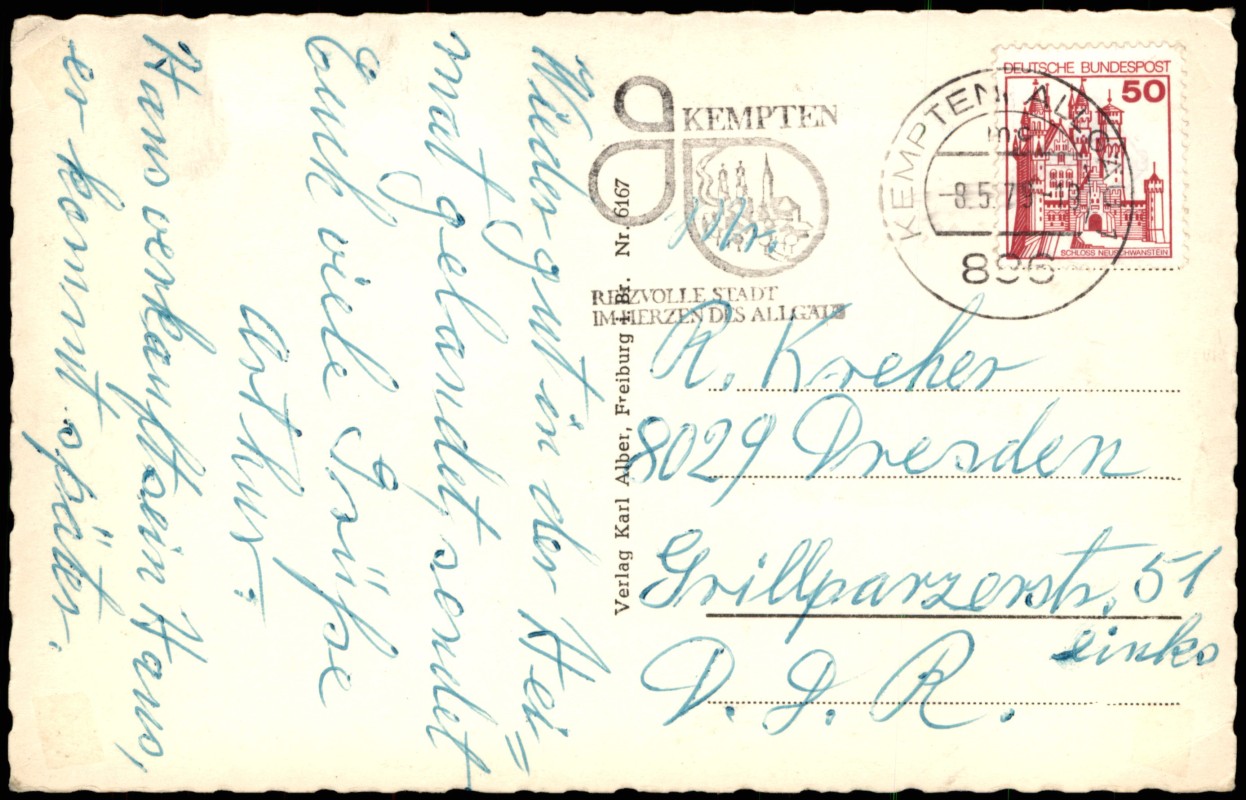 Wieder gut in der Hei=
mat gelandet sendet
Euch viele Grüße
Arthur.
Hans verkauft sein Haus,
er kommt später.
Verlag Karl Alber, Freiburg i. Br. Nr. 6167
KEMPTEN
REIZVOLLE STADT
IM HERZEN DES ALLGÄUS
KEMPTEN, ALLGÄU
896
DEUTSCHE BUNDESPOST
50
SCHLOSS NEUSCHWANSTEIN
R. Kreher
8029 Dresden
Grillparzerstr. 51
links
D. D. R.